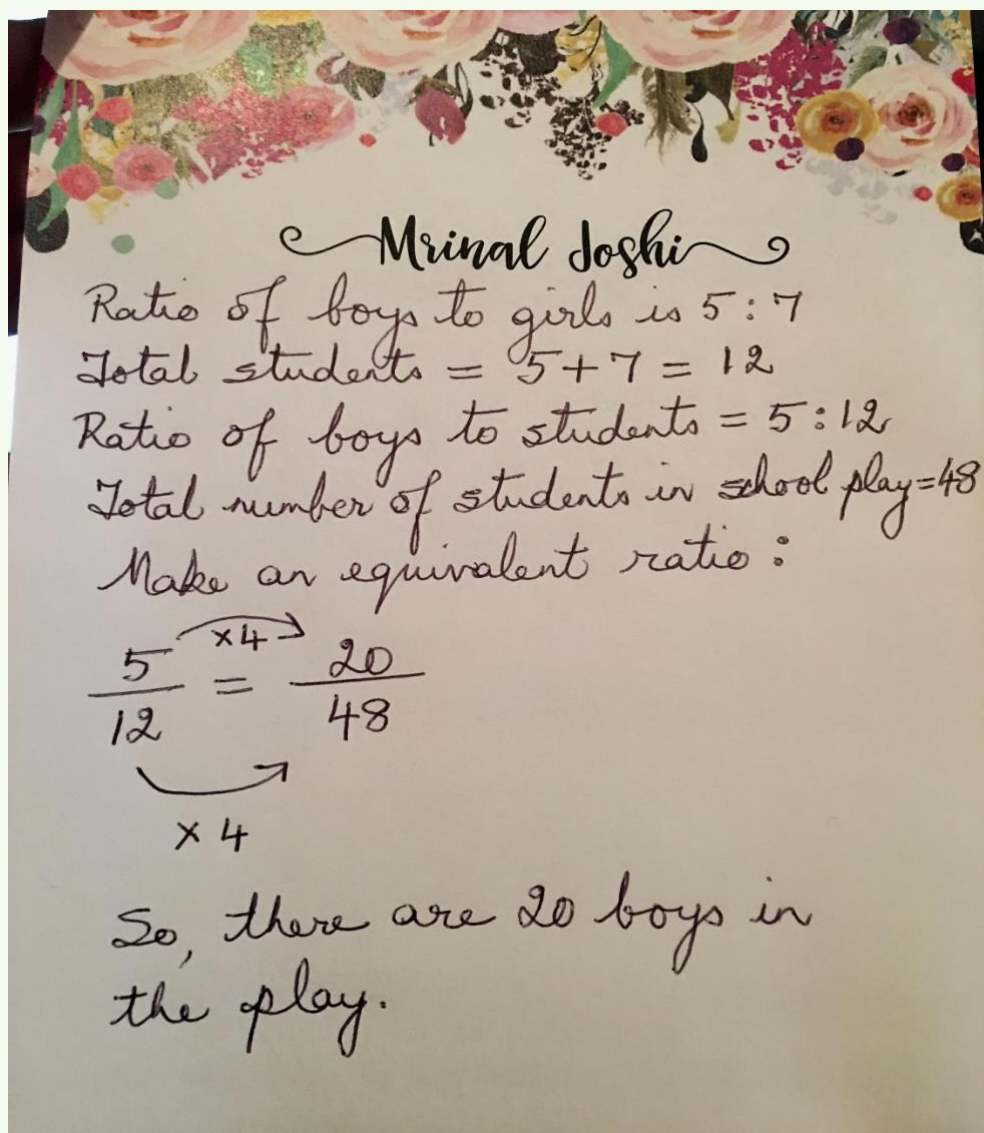 Mrinal Joshi
Ratio of boys to girls is 5:7
Total students = 5+7 = 12
Ratio of boys to students = 5:12
Total number of students in school play=48
Make an equivalent ratio:
×4
5/12 = 20/48
×4
So, there are 20 boys in
the play.